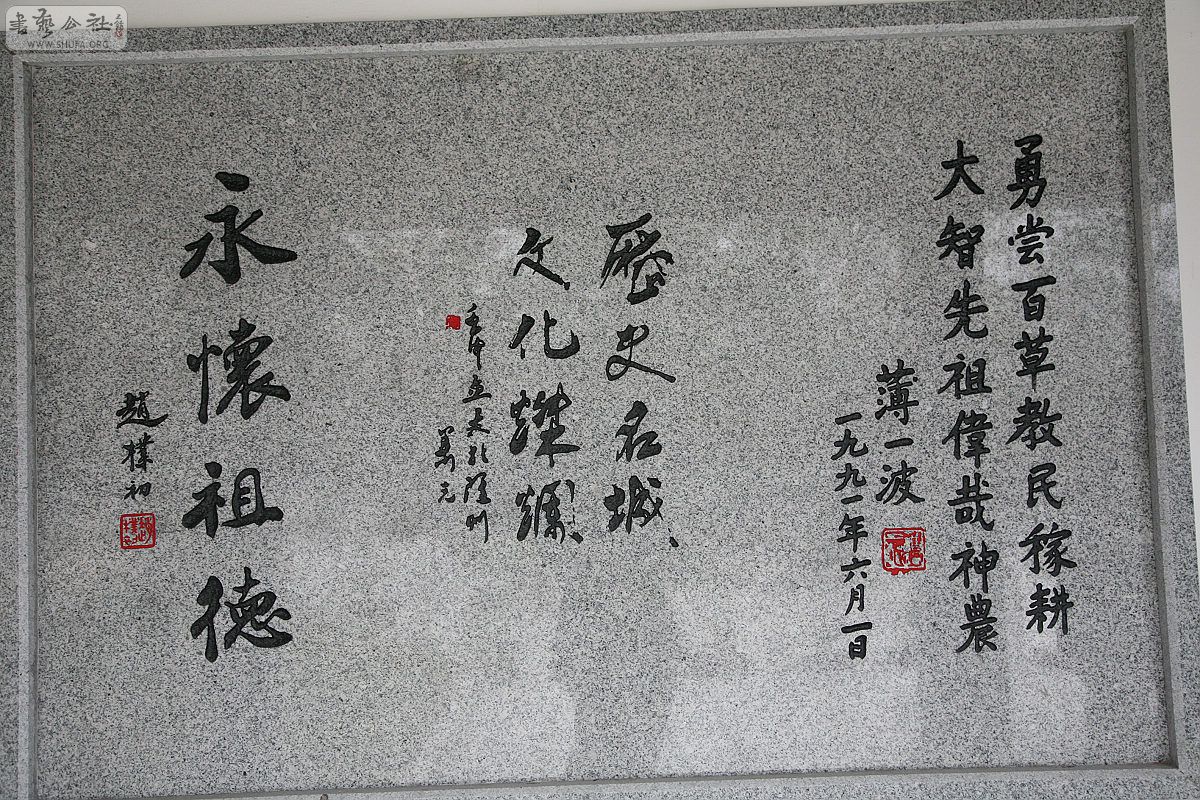 勇尝百草教民稼耕
大智先祖偉哉神農
薄一波
一九九一年六月一日
歷史名城
文化燦爛
壬申孟夏於隨州
萧克
永懷祖德
趙樸初
書藝公社
WWW.SHUFA.ORG